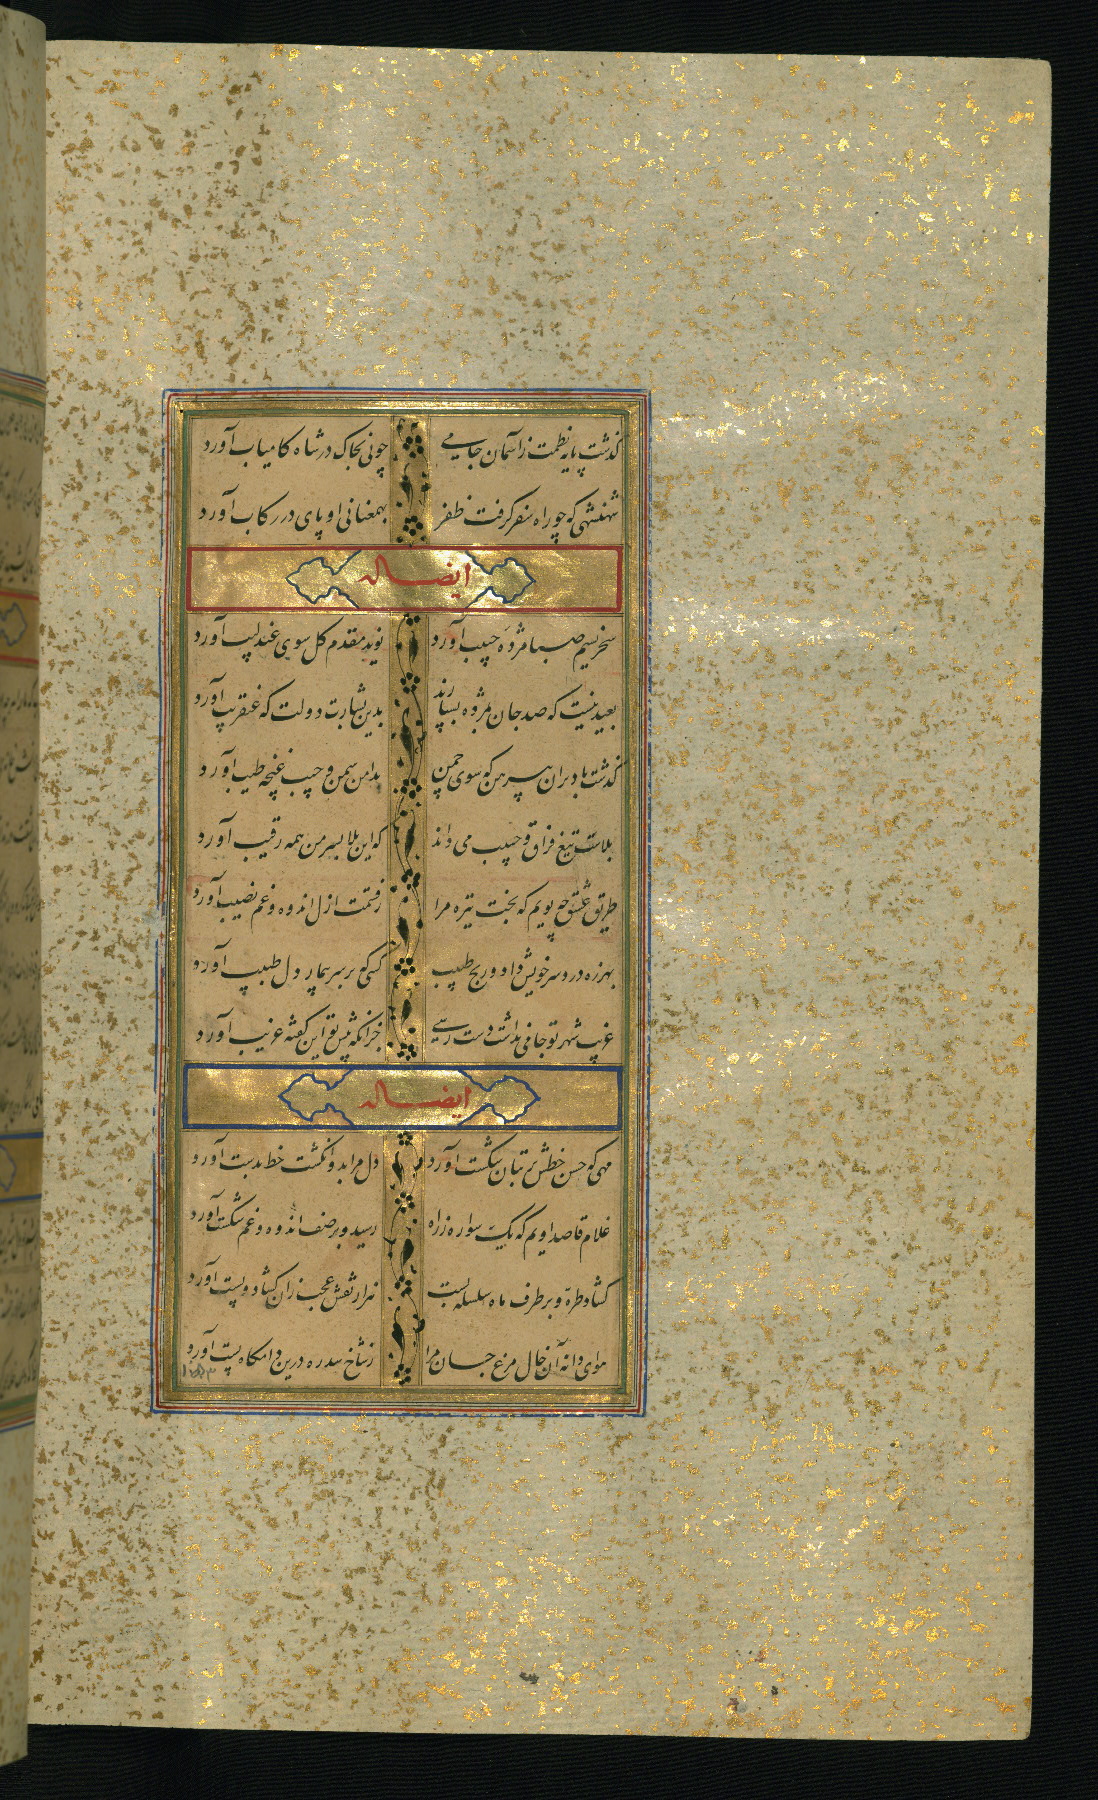 گذشت پایه نظمت ز آسمان جامی چو نی بخاک در شاه کامیاب آورد
شهنشهی که چو راه سفر گرفت ظفر بهمعنانی او پای در رکاب آورد
ایضا له
سحر نسیم صبا مژده حبیب آورد نوید مقدم گل سوی عندلیب آورد
بعید نیست که صد جان بمژده بسپارند بدین بشارت دولت که عنقریب آورد
گذشت باد بران پیرهن که سوی چمن بدامن سمن و جیب غنچه طیب آورد
بلاست تیغ فراق و حبیب می داند که این بلا بسر من همه رقیب آورد
طریق عشق چه پویم که بخت تیره مرا ز قسمت ازل اندوه و غم نصیب آورد
بهرزه درد سر خویش داد و رنج طبیب کسی که بر سر بیمار دل طبیب آورد
غریب شهر تو جامی نداشت دست رسی جز آنکه پیش تو این گفته غریب آورد
ایضا له
مهی که حسن خطش بر بتان شکست آورد دل مرا بدو انگشت خط بدست آورد
غلام قاصد اویم که یک سواره ز راه رسید و بر صف اندوه و غم شکست آورد
گشاد طره و بر طرف ماه سلسله بست هزار نقش عجب زان گشاد و بست آورد
هوای دانه آن خال مرغ جان مرا ز شاخ سدره درین دامگاه پست آورد